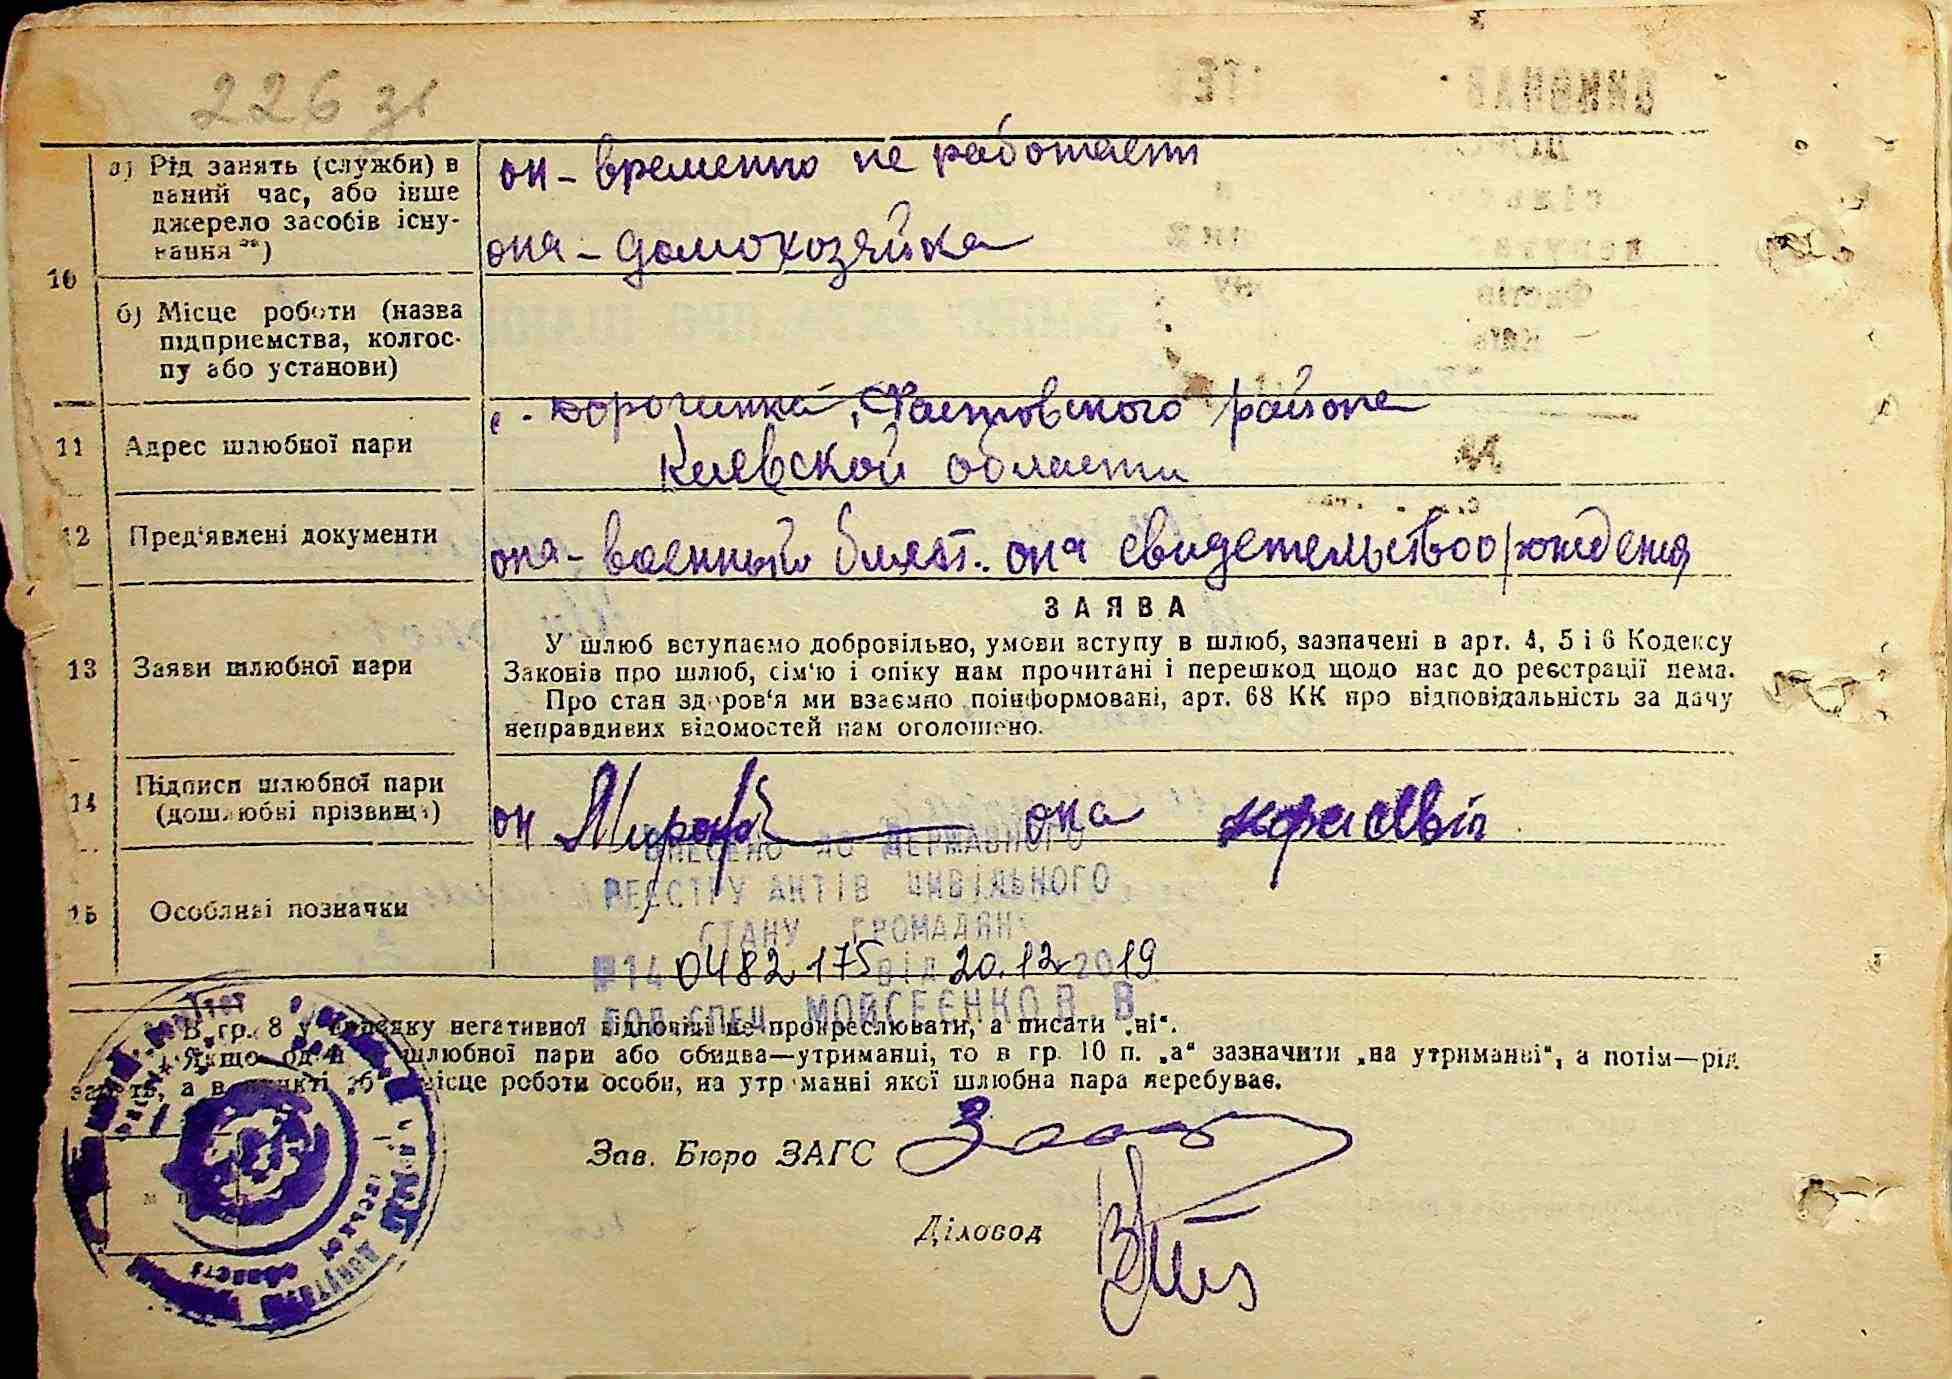 226 зв
10
а) Рід занять (служби) в
даний час, або інше
джерело засобів існу-
вання **)
он - временно не работает
она - домохозяйка
б) Місце роботи (назва
підприємства, колгос-
пу або установи)
11
Адрес шлюбної пари
с. Дорогинка, Фастовского района
Киевской области
12
Пред'явлені документи
она - военный билет. она свидетельство о рождения
13
Заяви шлюбної пари
ЗАЯВА
У шлюб вступаємо добровільно, умови вступу в шлюб, зазначені в арт. 4, 5 і 6 Кодексу
Законів про шлюб, сім'ю і опіку нам прочитані і перешкод щодо нас до реєстрації нема.
Про стан здоров'я ми взаємно поінформовані, арт. 68 КК про відповідальність за дачу
неправдивих відомостей нам оголошено.
14
Підписи шлюбної пари
(дошлюбні прізвища)
он она
15
Особливі позначки
ВНЕСЕНО ДО ДЕРЖАВНОГО
РЕЄСТРУ АКТІВ ЦИВІЛЬНОГО
СТАНУ ГРОМАДЯН
№14 0482175 від 20.12.2019
ГОЛ.СПЕЦ. МОЙСЕЄНКО В. В.
В гр. 8 у випадку негативної відповіді не прокреслювати, а писати „ні“.
Якщо один з шлюбної пари або обидва—утриманці, то в гр. 10 п. „а“ зазначити „на утриманні“, а потім—рід
занять, а в пункті „б“ місце роботи особи, на утриманні якої шлюбна пара перебуває.
Зав. Бюро ЗАГС
Діловод